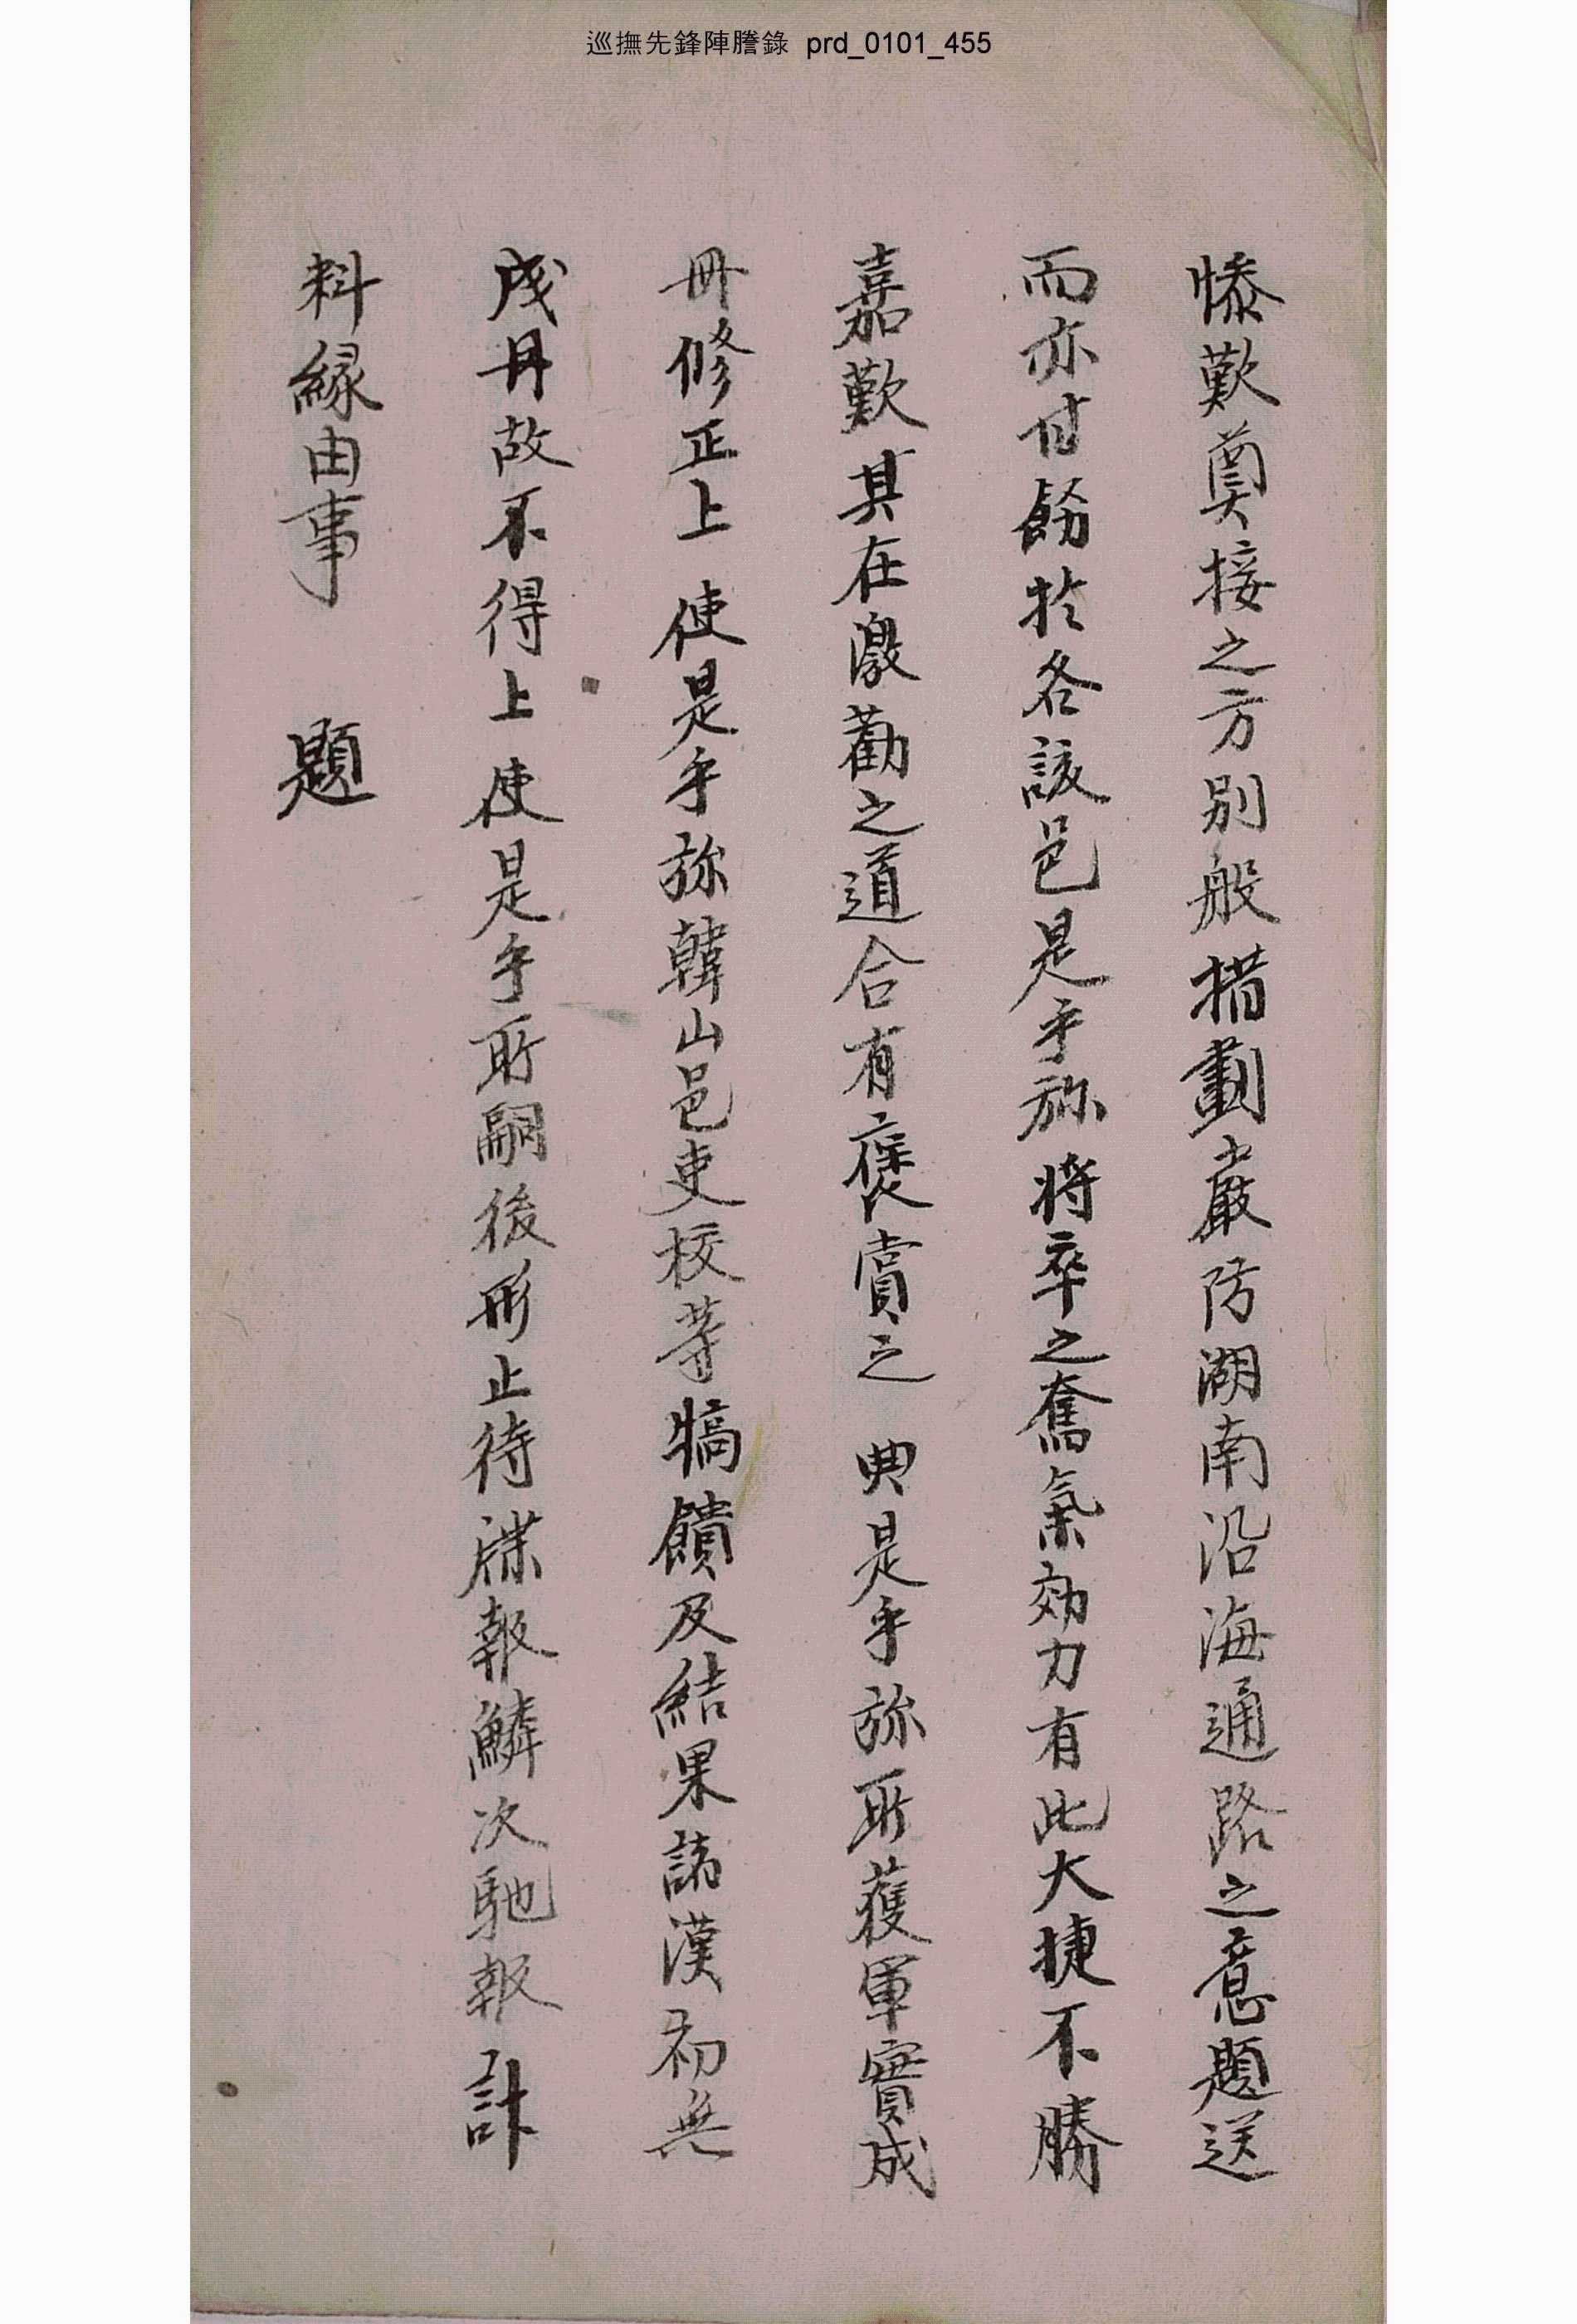 巡撫先鋒陣謄錄 prd_0101_455
慘歎奠接之方別般措劃嚴防湖南沿海通路之意題送
而亦甘飭於各該邑是乎旀將卒之奮氣効力有此大捷不勝
嘉歎其在激勸之道合有褒賞之 典是乎旀所獲軍實成
冊修正上 使是乎旀韓山邑吏校等犒饋及結果諸漢初無
成冊故不得上 使是乎所嗣後形止待牒報鱗次馳報計
料緣由事 題